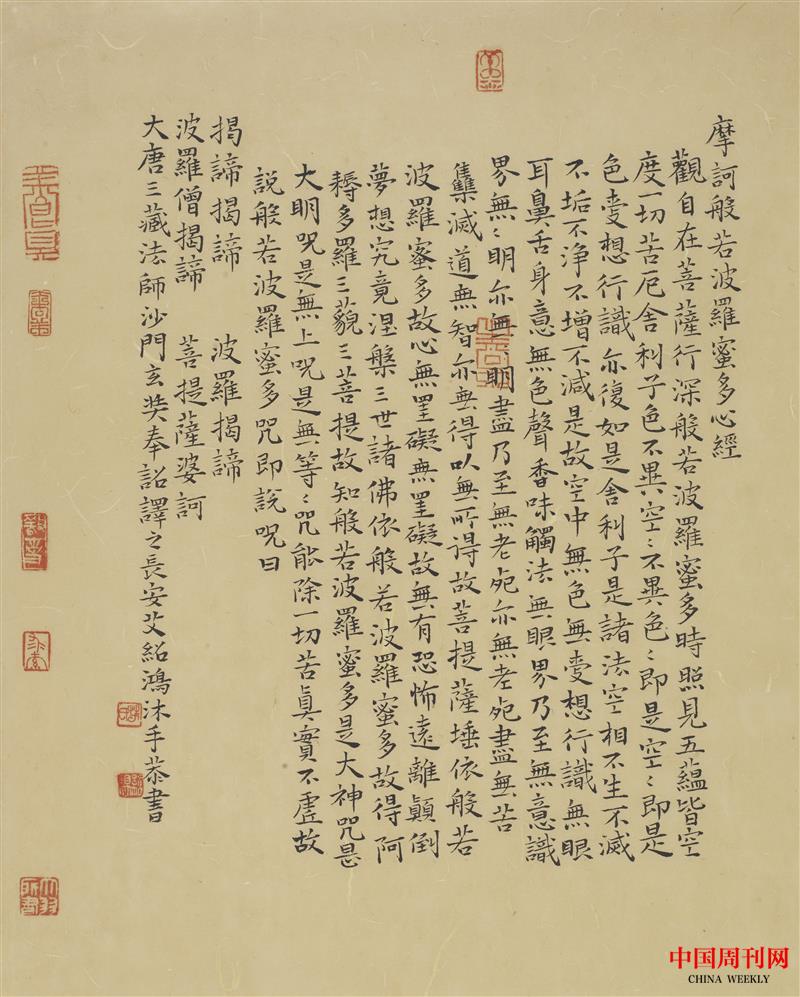 摩訶般若波羅蜜多心經
觀自在菩薩行深般若波羅蜜多時照見五蘊皆空
度一切苦厄舍利子色不異空〻不異色〻即是空〻即是
色受想行識亦復如是舍利子是諸法空相不生不滅
不垢不淨不增不減是故空中無色無受想行識無眼
耳鼻舌身意無色聲香味觸法無眼界乃至無意識
界無〻明亦無〻明盡乃至無老死亦無老死盡無苦
集滅道無智亦無得以無所得故菩提薩埵依般若
波羅蜜多故心無罣礙無罣礙故無有恐怖遠離顛倒
夢想究竟涅槃三世諸佛依般若波羅蜜多故得阿
耨多羅三藐三菩提故知般若波羅蜜多是大神咒是
大明咒是無上咒是無等〻咒能除一切苦真實不虛故
說般若波羅蜜多咒即說咒曰
揭諦揭諦 波羅揭諦
波羅僧揭諦 菩提薩婆訶
大唐三藏法師沙門玄奘奉詔譯之長安艾紹鴻沐手恭書
中国周刊网
CHINA WEEKLY